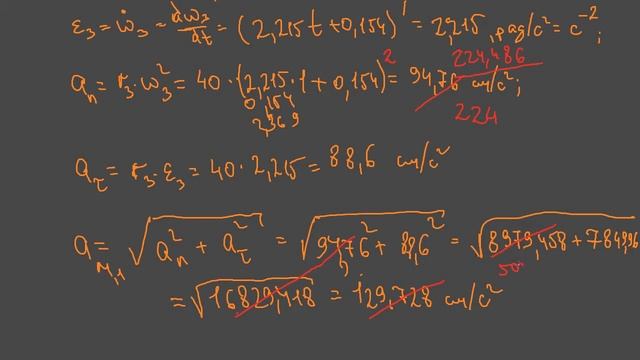 ε₃ = ω̇₃ = dω₃/dt = (2,215t + 0,154)' = 2,215, рад/с² = с⁻²;
224,486
aₙ = r₃·ω₃² = 40·(2,215·1 + 0,154)² = 94,76 см/с²;
0,154
2,369
224
a_τ = r₃·ε₃ = 40·2,215 = 88,6 см/с²
a = √(aₙ² + a_τ²) = √(94,76² + 88,6²) = √(8979,458 + 784,996
50
= √16829,418 = 129,728 см/с²